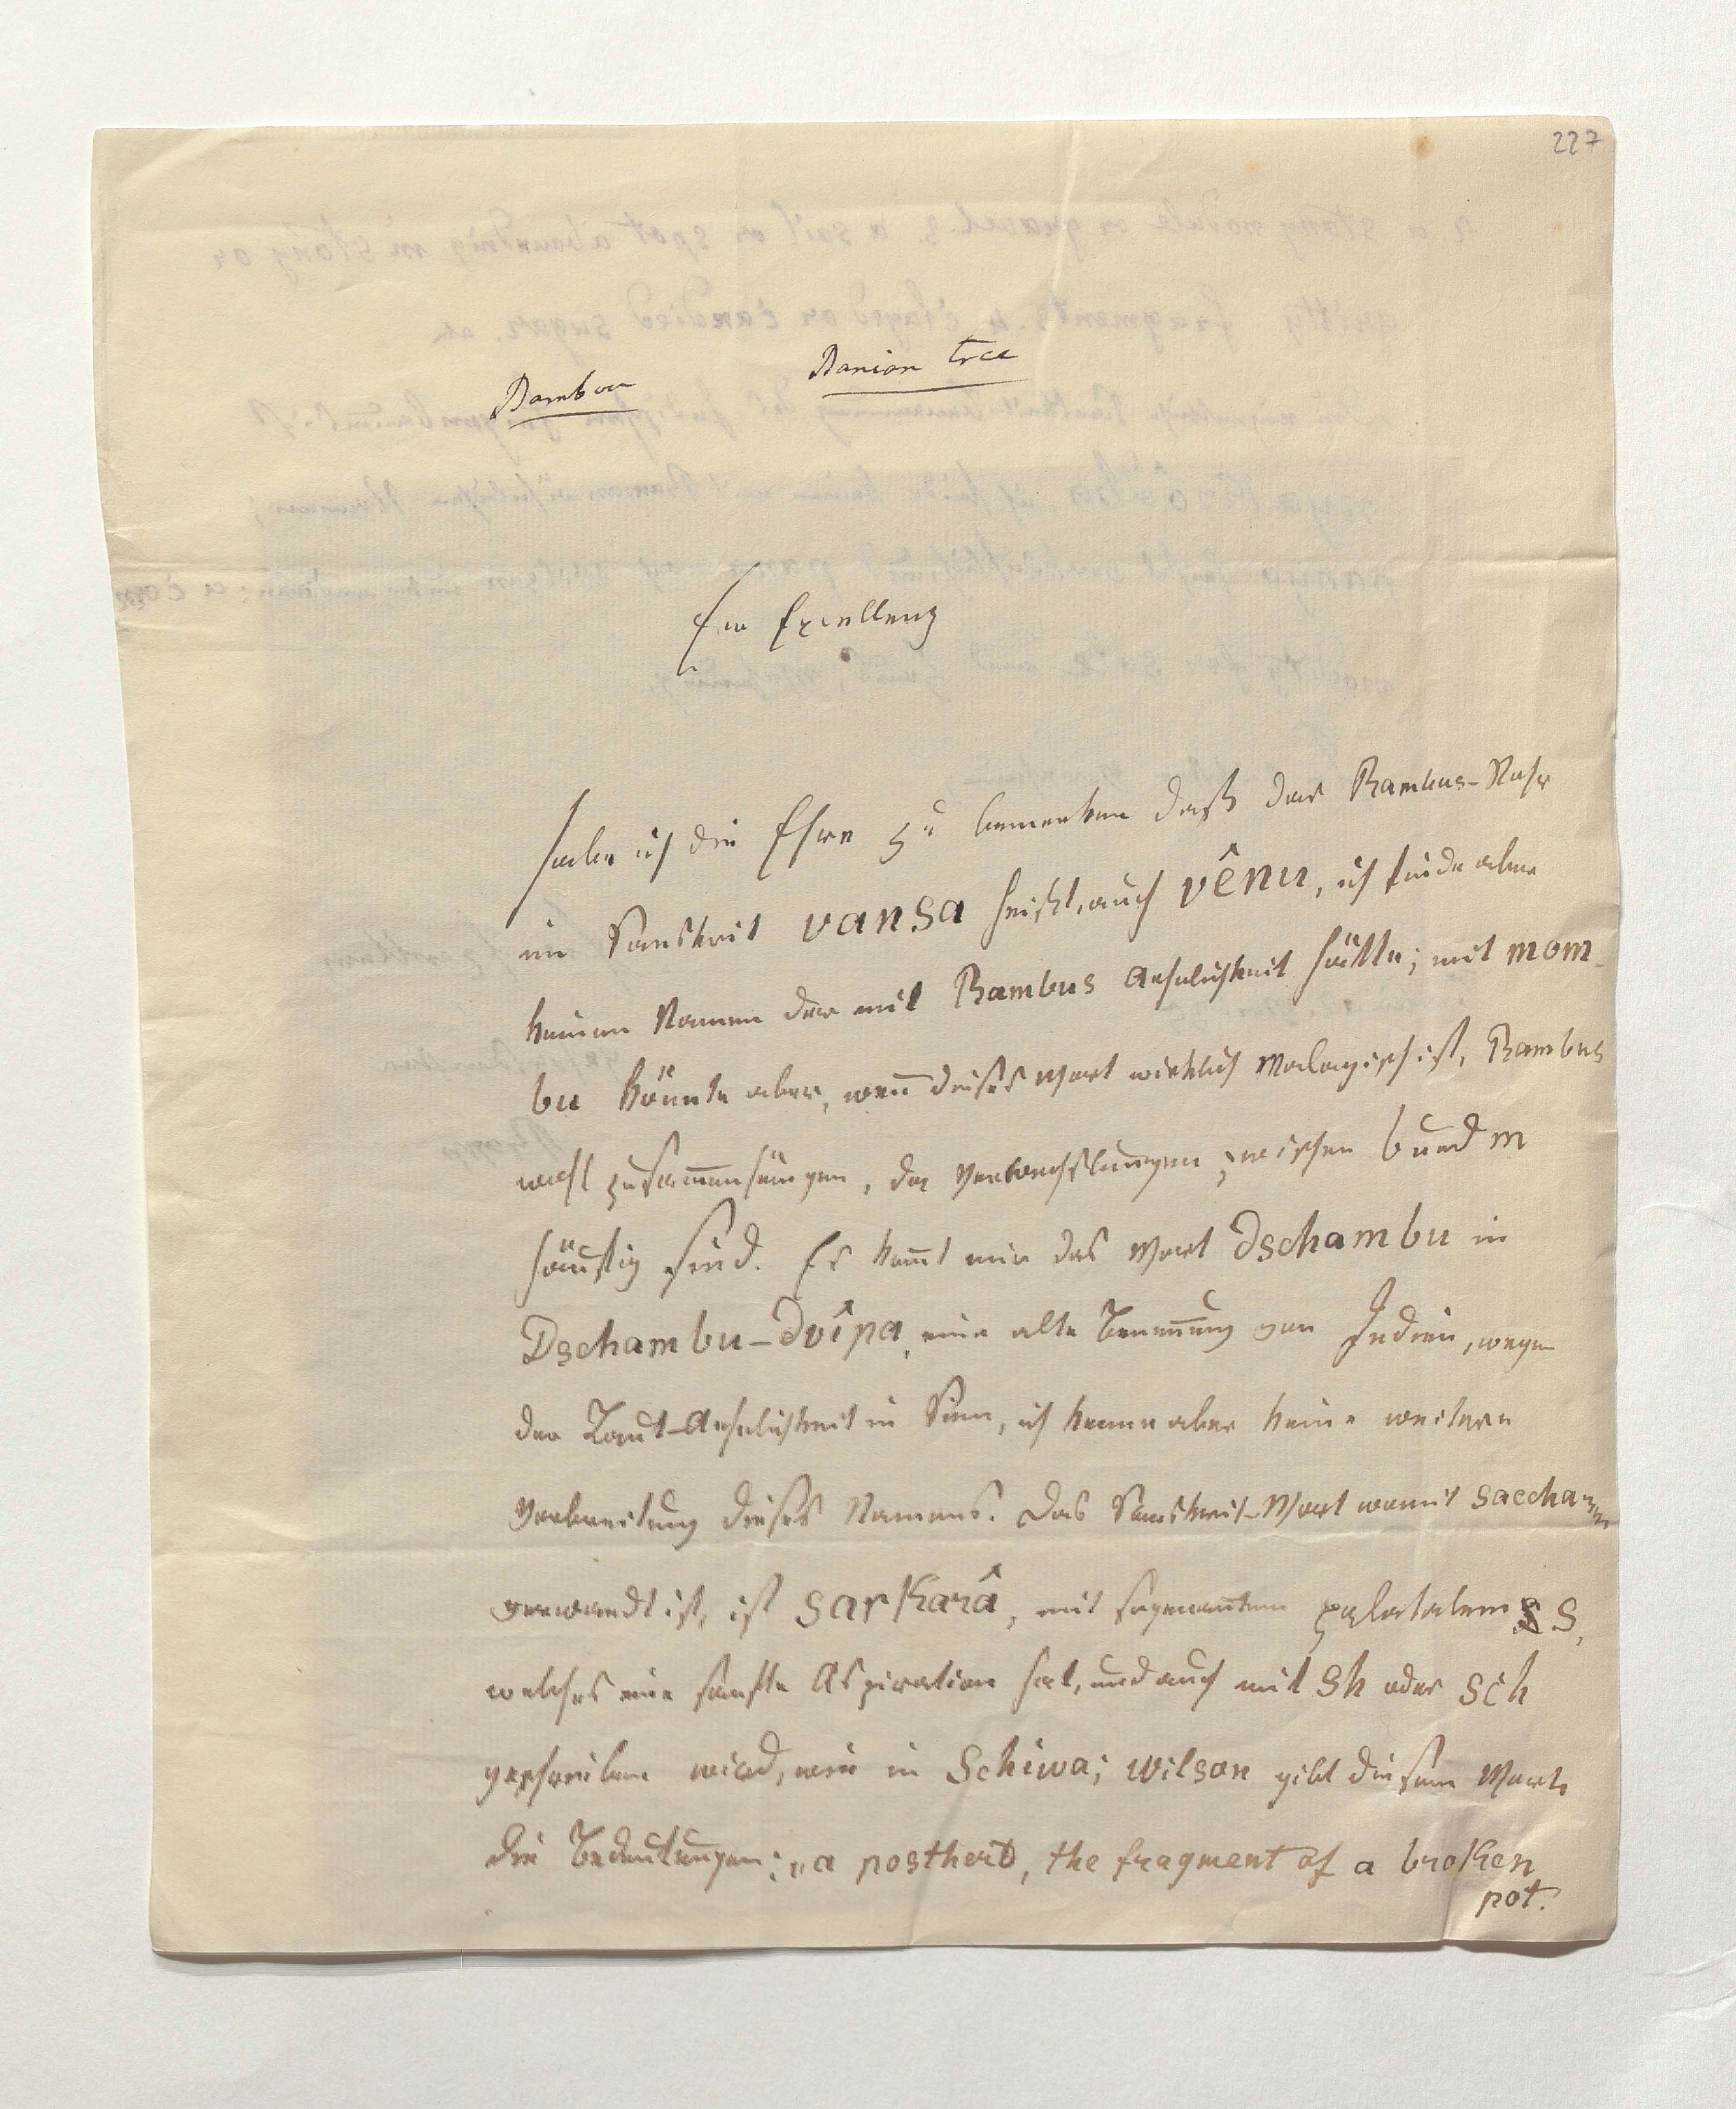 227
Bambou
Banian tree
Ew Excellenz
habe ich die Ehre zu bemerken daß das Bambus-Rohr
im Sanskrit vansa heißt, auch vênu, ich finde aber
keinen Namen der mit Bambus Aehnlichkeit hätte; mit mom-
bu könnte aber, wen̄ dieses Wort wirklich Malayisch ist, Bambus
wohl zusam̄enhängen, da Verwechslungen zwischen b und m
häufig sind. Es kom̄t mir das Wort Dschambu in
Dschambu-Dvîpa, eine alte Benen̄ung von Indien, wegen
der Laut-Aehnlichkeit in Sinn, ich kenne aber keine weitere
Verbreitung dieses Namens. Das Sanskrit-Wort womit saccharum
verwandt ist, ist sarkarâ, mit sogenan̄tem palatalem s,
welches eine sanfte Aspiration hat, und auch mit sh oder sch
geschrieben wird, wie in Schiwa; Wilson gibt diesem Worte
die Bedeutungen: „a postherd, the fragment of a broken
pot.